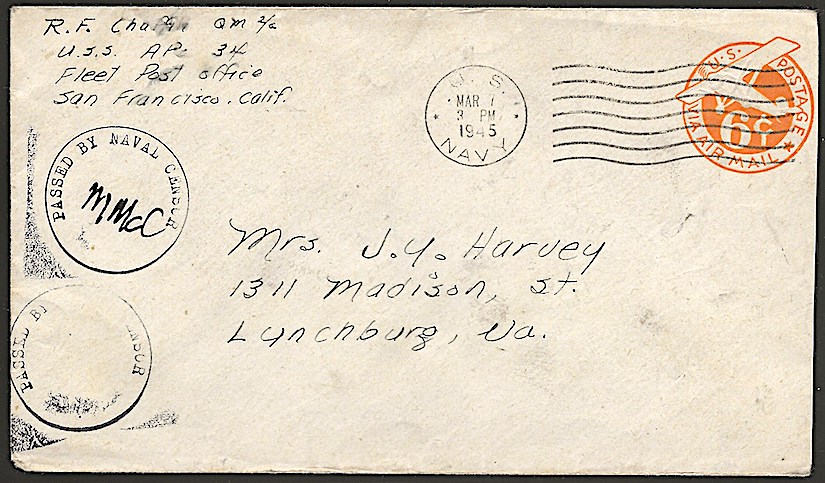 R. F. QM 2/c
U.S.S. AP 34
Fleet Post office
San Francisco, Calif.
U. S.
MAR 7
3 PM
1945
NAVY
U.S. POSTAGE
6¢
VIA AIR MAIL
PASSED BY NAVAL CENSOR
MMcC
PASSED BY
Mrs. J. Y. Harvey
1311 Madison, St.
Lynchburg, Va.